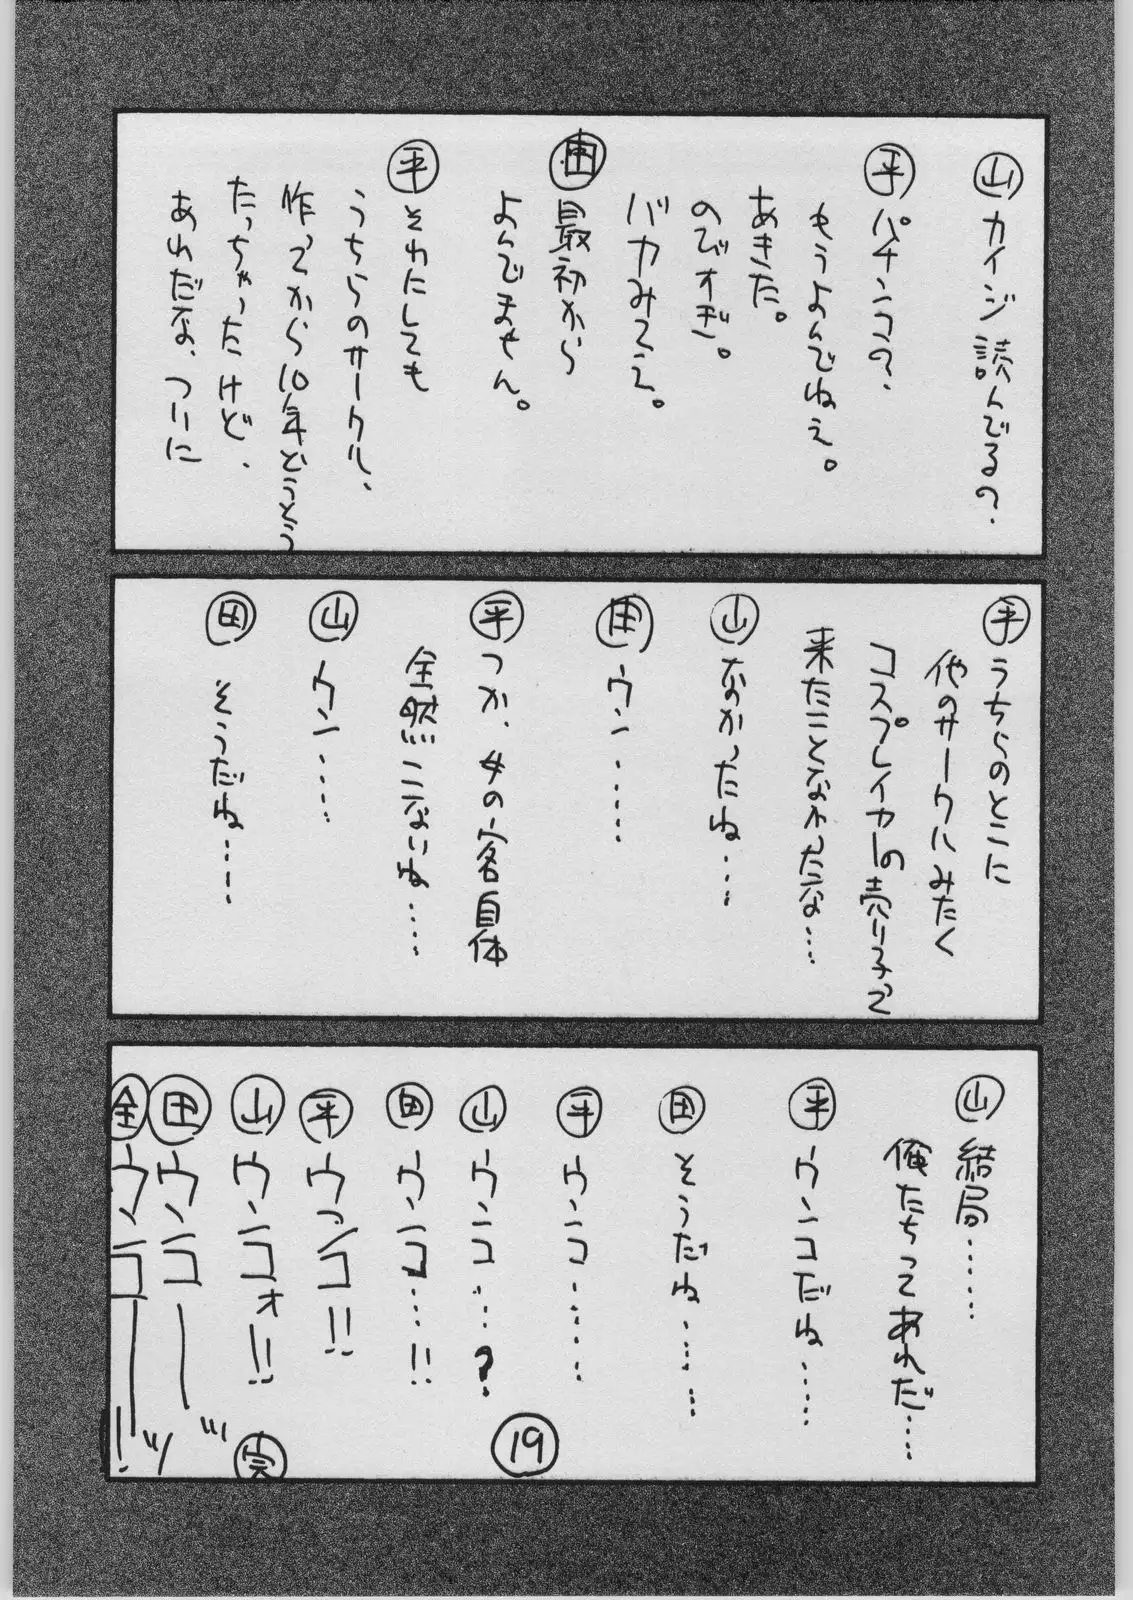 ㊤山 カイジ読んでるの?
平 パチンコの?
もうよんでねえ。
あきた。
のびすぎ。
バカみてえ。
田 最初から
よんでません。
平 それにしても
うちらのサークル、
作ってから10年とうとう
たっちゃったけど、
あれだな、ついに
平 うちらのとこに
他のサークルみたく
コスプレイヤーの売り子って
来たことなかったな…
山 なかったね…
田 ウン……
平 つか、女の客自体
全然こないね…
山 ウン……
田 そうだね……
山 結局……
俺たちってあれだ…
平 ウンコだね……
田 そうだね……
平 ウンコ……
山 ウンコ…?
田 ウンコ…!!
平 ウンコ!!
山 ウンコォ!!
田 ウンコ――ッ
全 ウンコ――ッ!
完
19